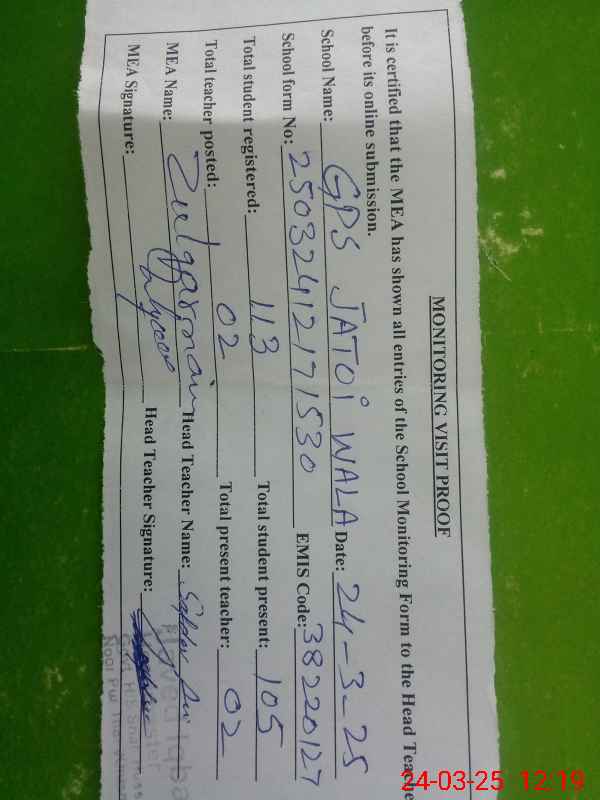 MONITORING VISIT PROOF
It is certified that the MEA has shown all entries of the School Monitoring Form to the Head Teache
before its online submission.
School Name: GPS JATOI WALA Date: 24-3-25
School form No: 25032412171530 EMIS Code: 38220127
Total student registered: 113 Total student present: 105
Total teacher posted: 02 Total present teacher: 02
MEA Name: Zulqarnain Head Teacher Name:
MEA Signature: Head Teacher Signature:
24-03-25 12:19